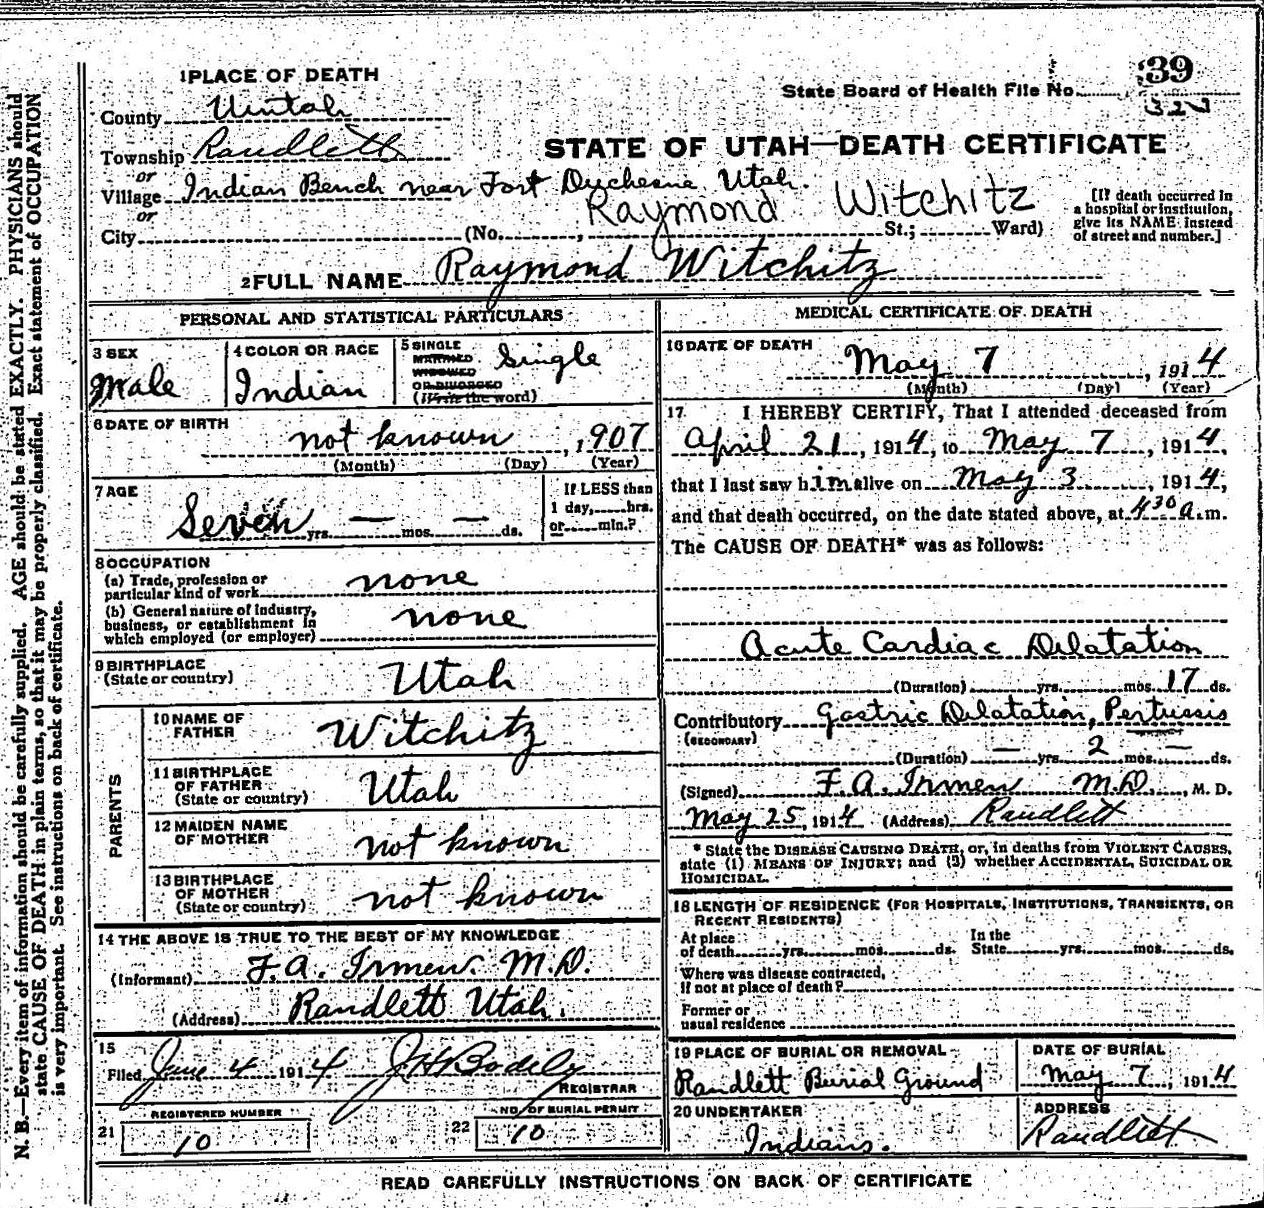 1 PLACE OF DEATH
39
State Board of Health File No.
327
County Uintah
Township Randlett
STATE OF UTAH—DEATH CERTIFICATE
or
Village Indian Bench near Fort Duchesne Utah.
or
Raymond Witchitz
City (No. , St.; Ward)
[If death occurred in
a hospital or institution,
give its NAME instead
of street and number.]
2 FULL NAME Raymond Witchitz
PERSONAL AND STATISTICAL PARTICULARS
3 SEX
Male
4 COLOR OR RACE
Indian
5 SINGLE
MARRIED
WIDOWED
OR DIVORCED
(Write the word)
Single
6 DATE OF BIRTH
not known , 1907
(Month) (Day) (Year)
7 AGE
Seven yrs. — mos. — ds.
If LESS than
1 day, hrs.
or min.?
8 OCCUPATION
(a) Trade, profession or
particular kind of work none
(b) General nature of industry,
business, or establishment in
which employed (or employer) none
9 BIRTHPLACE
(State or country) Utah
PARENTS
10 NAME OF
FATHER Witchitz
11 BIRTHPLACE
OF FATHER
(State or country) Utah
12 MAIDEN NAME
OF MOTHER not known
13 BIRTHPLACE
OF MOTHER
(State or country) not known
14 THE ABOVE IS TRUE TO THE BEST OF MY KNOWLEDGE
(Informant) F.A. Irmen. M.D.
(Address) Randlett Utah.
15
Filed June 4 1914 J H Bodely
REGISTRAR
REGISTERED NUMBER
21 10
NO. OF BURIAL PERMIT
22 10
MEDICAL CERTIFICATE OF DEATH
16 DATE OF DEATH
May 7 , 1914
(Month) (Day) (Year)
17 I HEREBY CERTIFY, That I attended deceased from
April 21, 1914, to May 7, 1914,
that I last saw him alive on May 3 1914,
and that death occurred, on the date stated above, at 430 a.m.
The CAUSE OF DEATH* was as follows:
Acute Cardiac Dilatation
(Duration) yrs. mos. 17 ds.
Contributory Gastric Dilatation, Pertussis
(SECONDARY)
(Duration) — yrs. 2 mos. — ds.
(Signed) F.A. Irmen M.D., M. D.
May 25, 1914 (Address) Randlett
* State the DISEASE CAUSING DEATH, or, in deaths from VIOLENT CAUSES,
state (1) MEANS OF INJURY; and (2) whether ACCIDENTAL, SUICIDAL OR
HOMICIDAL.
18 LENGTH OF RESIDENCE (FOR HOSPITALS, INSTITUTIONS, TRANSIENTS, OR
RECENT RESIDENTS)
At place
of death yrs. mos. ds.
In the
State yrs. mos. ds.
Where was disease contracted,
if not at place of death?
Former or
usual residence
19 PLACE OF BURIAL OR REMOVAL
Randlett Burial Ground
DATE OF BURIAL
May 7, 1914
20 UNDERTAKER
Indians.
ADDRESS
Randlett
READ CAREFULLY INSTRUCTIONS ON BACK OF CERTIFICATE
N. B.—Every item of information should be carefully supplied. AGE should be stated EXACTLY. PHYSICIANS should
state CAUSE OF DEATH in plain terms, so that it may be properly classified. Exact statement of OCCUPATION
is very important. See instructions on back of certificate.